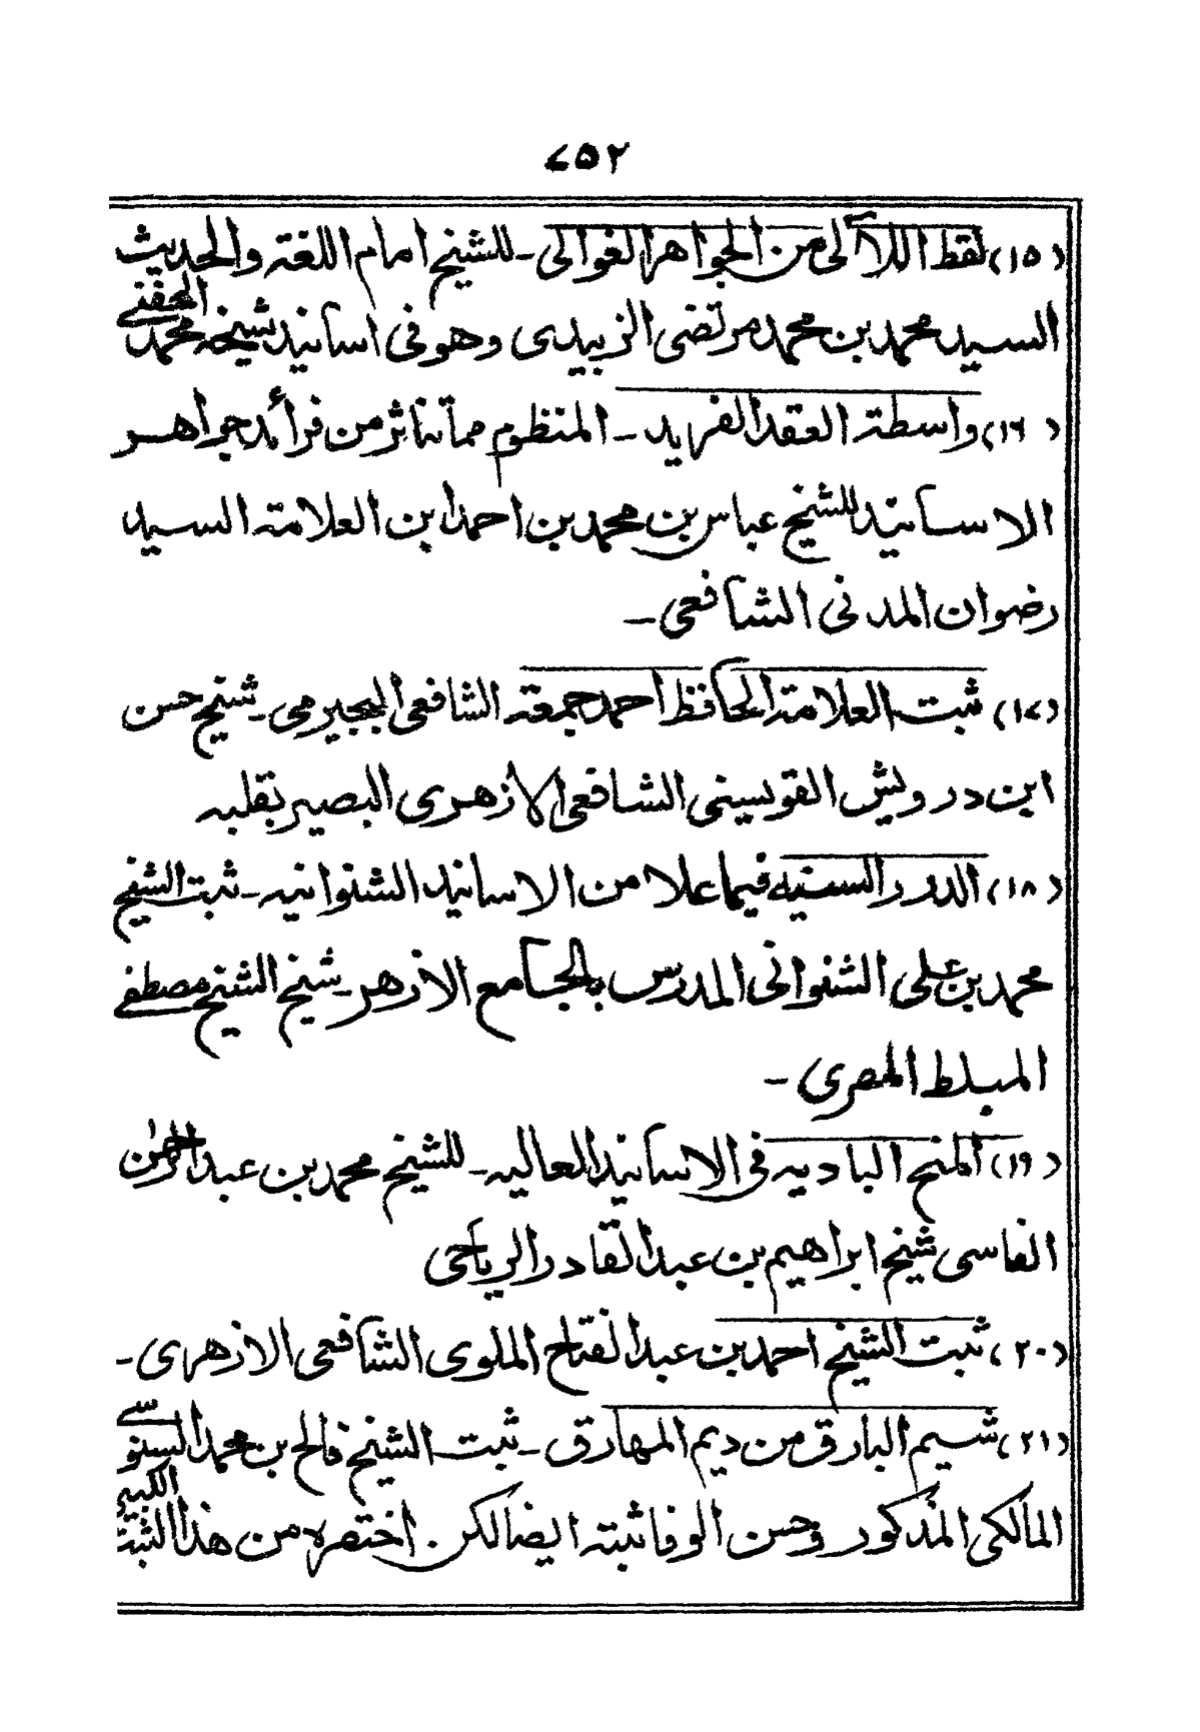 ٧٥٢
(١٥) لقط اللآلى من الجواهر الغوالى ـ للشيخ امام اللغة والحديث
السيد محمد بن محمد مرتضى الزبيدى وهو فى اسانيد شيخه محمد الحفنى
(١٦) واسطة العقد الفريد ـ المنظوم مما تناثر من فرائد جواهر
الاسانيد للشيخ عباس بن محمد بن احمد ابن العلامة السيد
رضوان المدنى الشافعى ـ
(١٧) ثبت العلامة الحافظ احمد جمعة الشافعى البجيرمى ـ شيخ حسن
ابن درويش القويسينى الشافعى الازهرى البصير بقلبه
(١٨) الدرر السنيه فيما علا من الاسانيد الشنوانيه ـ ثبت الشيخ
محمد بن على الشنوانى المدرس بالجامع الازهر ـ شيخ الشيخ مصطفى
المبلط المصرى ـ
(١٩) المنح الباديه فى الاسانيد العاليه ـ للشيخ محمد بن عبد الرحمٰن
الفاسى شيخ ابراهيم بن عبد القادر الرياحى
(٢٠) ثبت الشيخ احمد بن عبد الفتاح الملوى الشافعى الازهرى ـ
(٢١) شيم البارق من ديم المهارق ـ ثبت الشيخ فالح بن محمد السنوسى الكبير
المالكى المذكور وحسن الوفا ثبته ايضا لكن اختصره من هذا الثبت